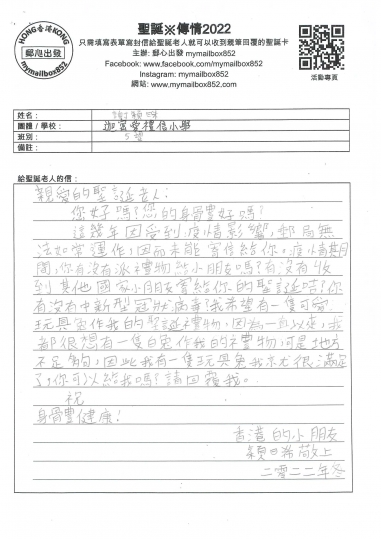 HONG香港KONG
郵心出發
mymailbox852
聖誕※傳情2022
只需填寫表單寫封信給聖誕老人就可以收到親筆回覆的聖誕卡
主辦: 郵心出發 mymailbox852
Facebook: www.facebook.com/mymailbox852
Instagram: mymailbox852
網站: www.mymailbox852.com
活動專頁
姓名:
團體 / 學校: 迦密愛禮信小學
班別: 5望
備註:
給聖誕老人的信:
親愛的聖誕老人:
您好嗎?您的身體好嗎?
這幾年因受到疫情影響,郵局無
法如常運作,因而未能寄信給你。疫情期
間,你有沒有派禮物給小朋友嗎?有沒有收
到其他國家小朋友寄給你的聖誕咭?你
有沒有中新型冠狀病毒?我希望有一隻可愛
玩具兔作我的聖誕禮物,因為一直以來,我
都很想有一隻白兔作我的禮物,可是地方
不足夠,因此我有一隻玩具兔我亦很滿足
了,你可以給我嗎?請回覆我。
祝
身體健康!
香港的小朋友
敬上
二零二二年冬